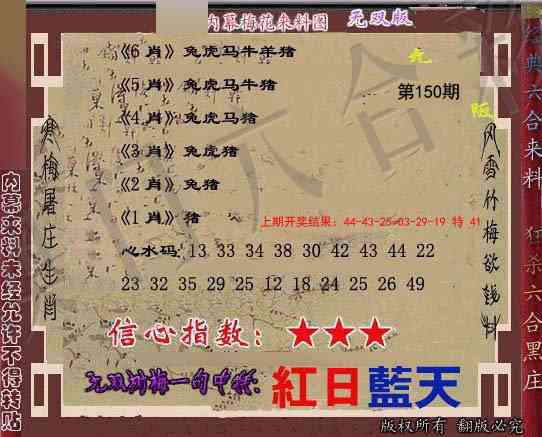 内幕梅花来料图 无双版
《6 肖》兔虎马牛羊猪
《5 肖》兔虎马牛猪
《4 肖》兔虎马猪
《3 肖》兔虎猪
《2 肖》兔猪
《1 肖》猪
第150期
上期开奖结果：44-43-25-03-29-19 特 41
心水码: 13 33 34 38 30 42 43 44 22
23 32 35 29 25 12 18 24 25 26 49
信心指数：★★★
无双刘梅一句中特:紅日藍天
版权所有 翻版必究
寒梅屠庄生肖
风雪竹梅欲钱料
内幕来料未经允许不得转贴
经典六合来料
狂杀六合黑庄